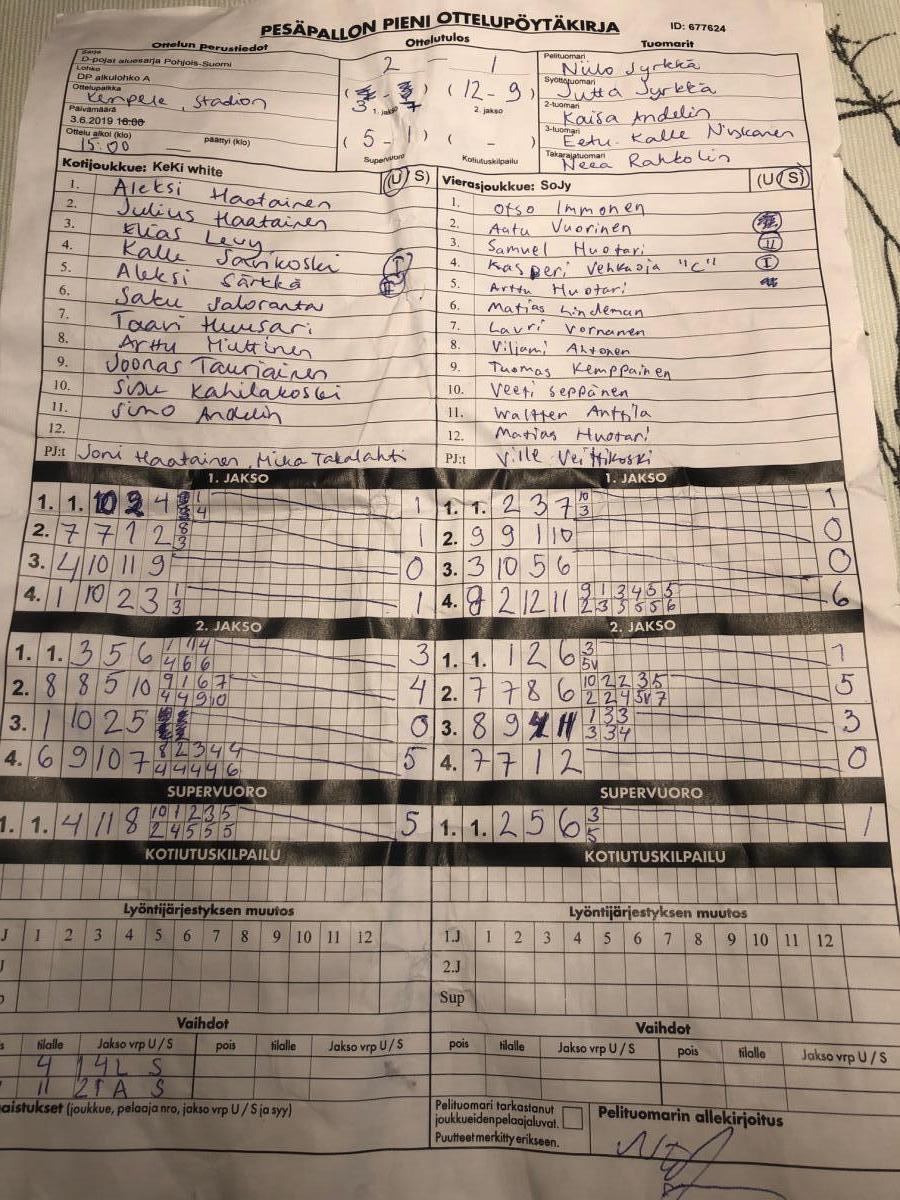 PESÄPALLON PIENI OTTELUPÖYTÄKIRJA
ID: 677624
Ottelun perustiedot
Sarja
D-pojat aluesarja Pohjois-Suomi
Lohko
DP alkulohko A
Ottelupaikka
Kempele, Stadion
Päivämäärä
3.6.2019 16:00
Ottelu alkoi (klo) päättyi (klo)
15:00
Ottelutulos
2 - 1
(3 - 7) (12 - 9)
1. jakso 2. jakso
(5 - 1) ( - )
Supervuoro Kotiutuskilpailu
Tuomarit
Pelituomari
Niilo Jyrkkä
Syöttötuomari
Jutta Jyrkkä
2-tuomari
Kaisa Andelin
3-tuomari
Eetu-Kalle Niskanen
Takarajatuomari
Neea Rahkolin
Kotijoukkue: KeKi white (U S)
1. Aleksi Haatainen
2. Julius Haatainen
3. Elias Levy
4. Kalle Sarikoski I
5. Aleksi Särkkä II
6. Saku Saloranta
7. Taavi Huusari
8. Arttu Miettinen
9. Joonas Tauriainen
10. Sisu Kahilakoski
11. Simo Andelin
12.
PJ:t Joni Haatainen, Mika Takalahti
Vierasjoukkue: SoJy (U S)
1. Otso Immonen
2. Aatu Vuorinen
3. Samuel Huotari II
4. Kasperi Vehkaoja "C" I
5. Arttu Huotari
6. Matias Lindeman
7. Lauri Vornanen
8. Viljami Ahtonen
9. Tuomas Kemppainen
10. Veeti Seppänen
11. Waltter Anttila
12. Matias Huotari
PJ:t Ville Veittikoski
1. JAKSO 1. JAKSO
1. 1. 10 2 4 1
2. 7 7 1 2 8 3 1
3. 4 10 11 9 0
4. 1 10 2 3 1 3 1
1. 1. 2 3 7 10 3 1
2. 9 9 1 10 0
3. 3 10 5 6 0
4. 2 12 11 9 1 3 4 5 5 2 3 5 5 5 6 6
2. JAKSO 2. JAKSO
1. 1. 3 5 6 1 11 4 4 6 6 3
2. 8 8 5 10 9 1 6 7 4 4 9 10 4
3. 1 10 2 5 0
4. 6 9 10 7 8 2 3 4 4 4 4 4 4 6 5
1. 1. 1 2 6 3 5v 1
2. 7 7 8 6 10 2 2 3 5 2 2 4 5v 7 5
3. 8 9 11 1 3 3 3 3 4 3
4. 7 7 1 2 0
SUPERVUORO SUPERVUORO
1. 1. 4 11 8 10 1 2 3 5 2 4 5 5 5 5
1. 1. 2 5 6 3 5 1
KOTIUTUSKILPAILU KOTIUTUSKILPAILU
Lyöntijärjestyksen muutos Lyöntijärjestyksen muutos
J 1 2 3 4 5 6 7 8 9 10 11 12
1.J 1 2 3 4 5 6 7 8 9 10 11 12
2.J
Sup
Vaihdot Vaihdot
tilalle Jakso vrp U / S pois tilalle Jakso vrp U / S
pois tilalle Jakso vrp U / S pois tilalle Jakso vrp U / S
4 14L S
11 21A S
aistukset (joukkue, pelaaja nro, jakso vrp U / S ja syy)
Pelituomari tarkastanut
joukkueiden pelaajaluvat.
Puutteet merkitty erikseen.
Pelituomarin allekirjoitus